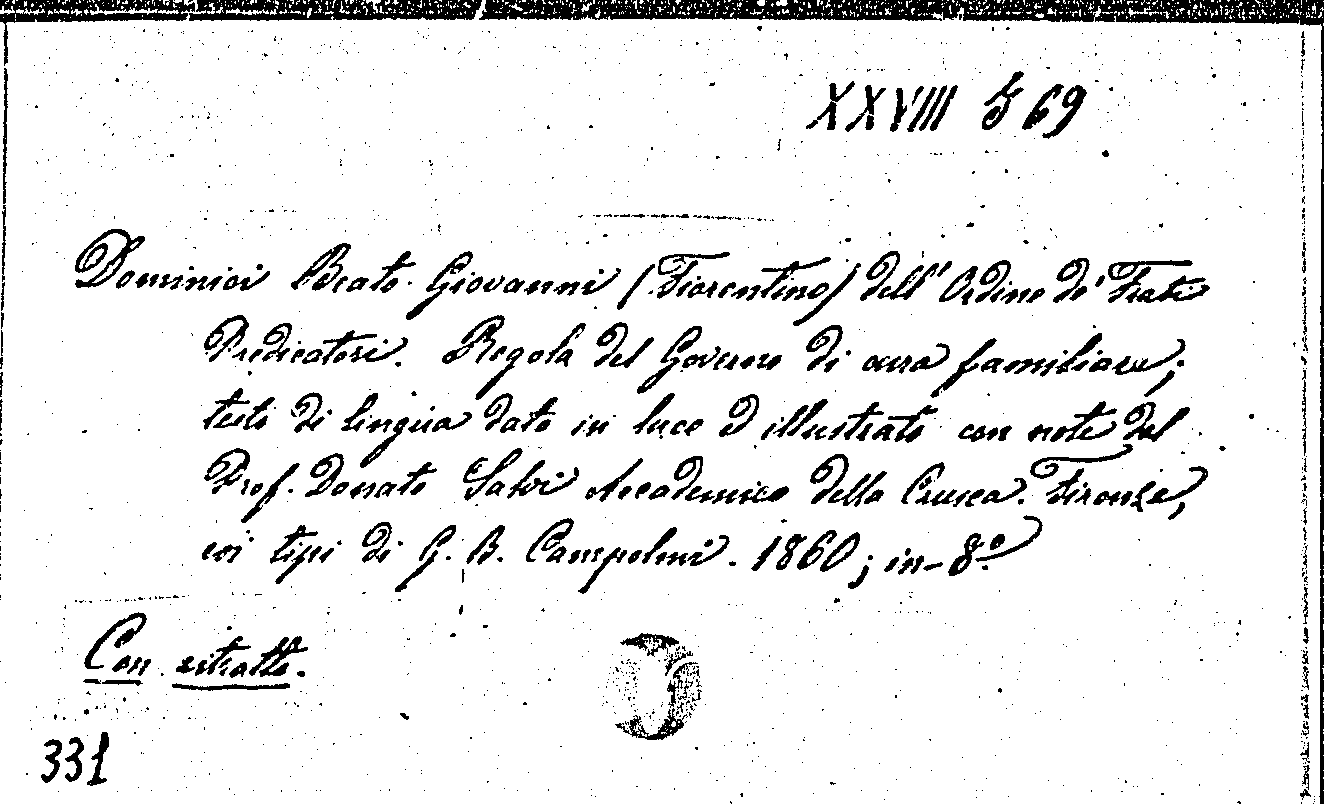 XXVIII J 69
Dominici Beato Giovanni (Fiorentino) dell' Ordine de' Frati
Predicatori. Regola del Governo di cura familiare;
testo di lingua dato in luce ed illustrato con note dal
Prof. Donato Salvi Accademico della Crusca. Firenze,
coi tipi di G. B. Campolmi. 1860; in-8.º
Con ritratto.
331